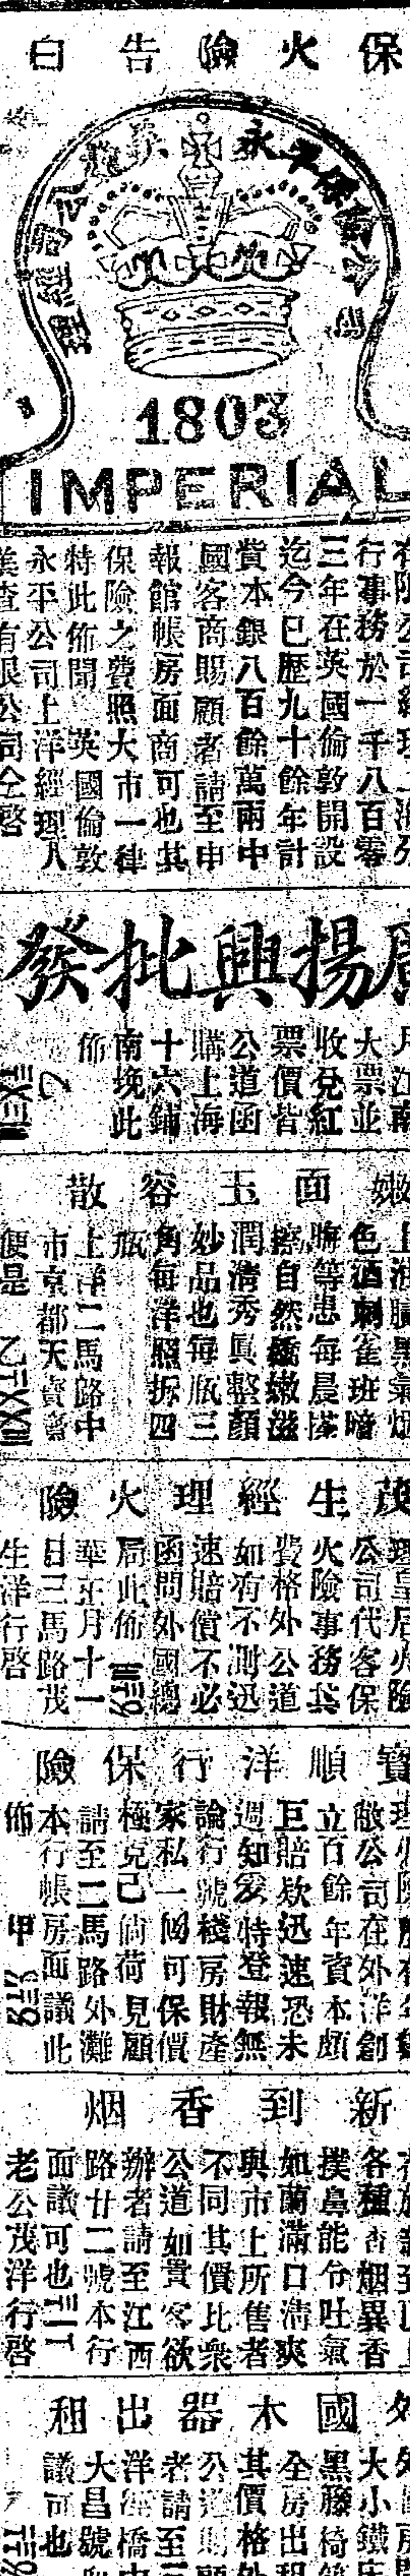 保火險告白
永平保險公司
經理
1803
IMPERIAL
行事務於一千八百零
三年在英國倫敦開設
迄今已歷九十餘年計
貲本銀八百餘萬兩中
國客商賜顧者請至申
報館帳房面商可也其
保險之費照大市一律
特此佈聞 英國倫敦
永平公司上洋經理人
美查有限公司仝啓
揚興批發
大票並
收兌紅
票價皆
公道函
購上海
十六鋪
南挽此
佈
嫩面玉容散
色酒刺雀班暗
晦等患每晨搽
擦自然嬌嫩滋
潤淸秀眞整顏
妙品也每瓶三
角每洋照拆四
瓶
上洋二馬路中
市京都天寶齋
便是
茂生經理火險
公司代客保
火險事務其
費格外公道
如有不測迅
速賠償不必
函問外國總
局此佈
華正月十一
日三馬路茂
生洋行啓
寶順洋行保險
敝公司在外洋創
立百餘年資本頗
巨賠欵迅速恐未
週知爰特登報無
論行號棧房財產
家私一倒可保價
極克己倘荷見顧
請至二馬路外灘
本行帳房面議此
佈 甲
新到香烟
各種香烟異香
撲鼻能令吐氣
如蘭滿口清爽
與市上所售者
不同其價比衆
公道如貴客欲
辦者請至江西
路廿二號本行
面議可也
老公茂洋行啓
外國木器出租
大小鐵床
黑藤椅
全房出租
其價格外
公道賜顧
者請至三
洋涇橋中
大昌號
議可也